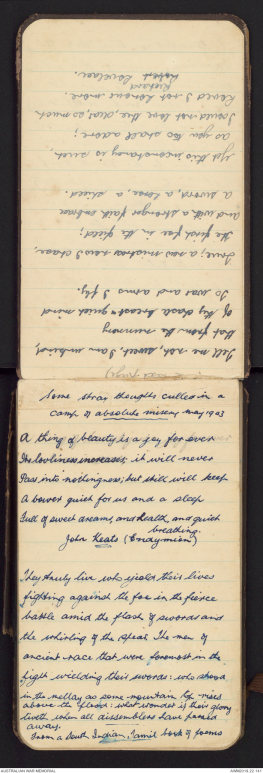 Tell me not, sweet, I am unkind,
that from the nunnery
Of thy chaste breast & quiet mind
To war and arms I fly.
True; a new mistress now I chase,
The first foe in the field;
and with a stronger faith embrace
a sword, a horse, a shield.
Yet this inconstancy is such,
as you too shall adore;
I could not love thee, dear, so much
Loved I not honour more.
Richard
Robert Lovelace.
Some stray thoughts culled in a
camp of absolute misery May 1943
A thing of beauty is a joy for ever
Its loveliness increases; it will never
Pass into nothingness; but still will keep
A bower quiet for us and a sleep
Full of sweet dreams, and health, and quiet
breathing.
John Keats (Endymion)
They truly live who yield their lives
fighting against the foe in the fierce
battle amid the flash of swords and
the whirling of the spear. The men of
ancient race that were foremost in the
fight wielding their swords, who stood
in the mellay as some mountain top rises
above the flood: what wonder if their glory
liveth when all dissemblers have passed
away.
From a South Indian Tamil book of poems
AUSTRALIAN WAR MEMORIAL